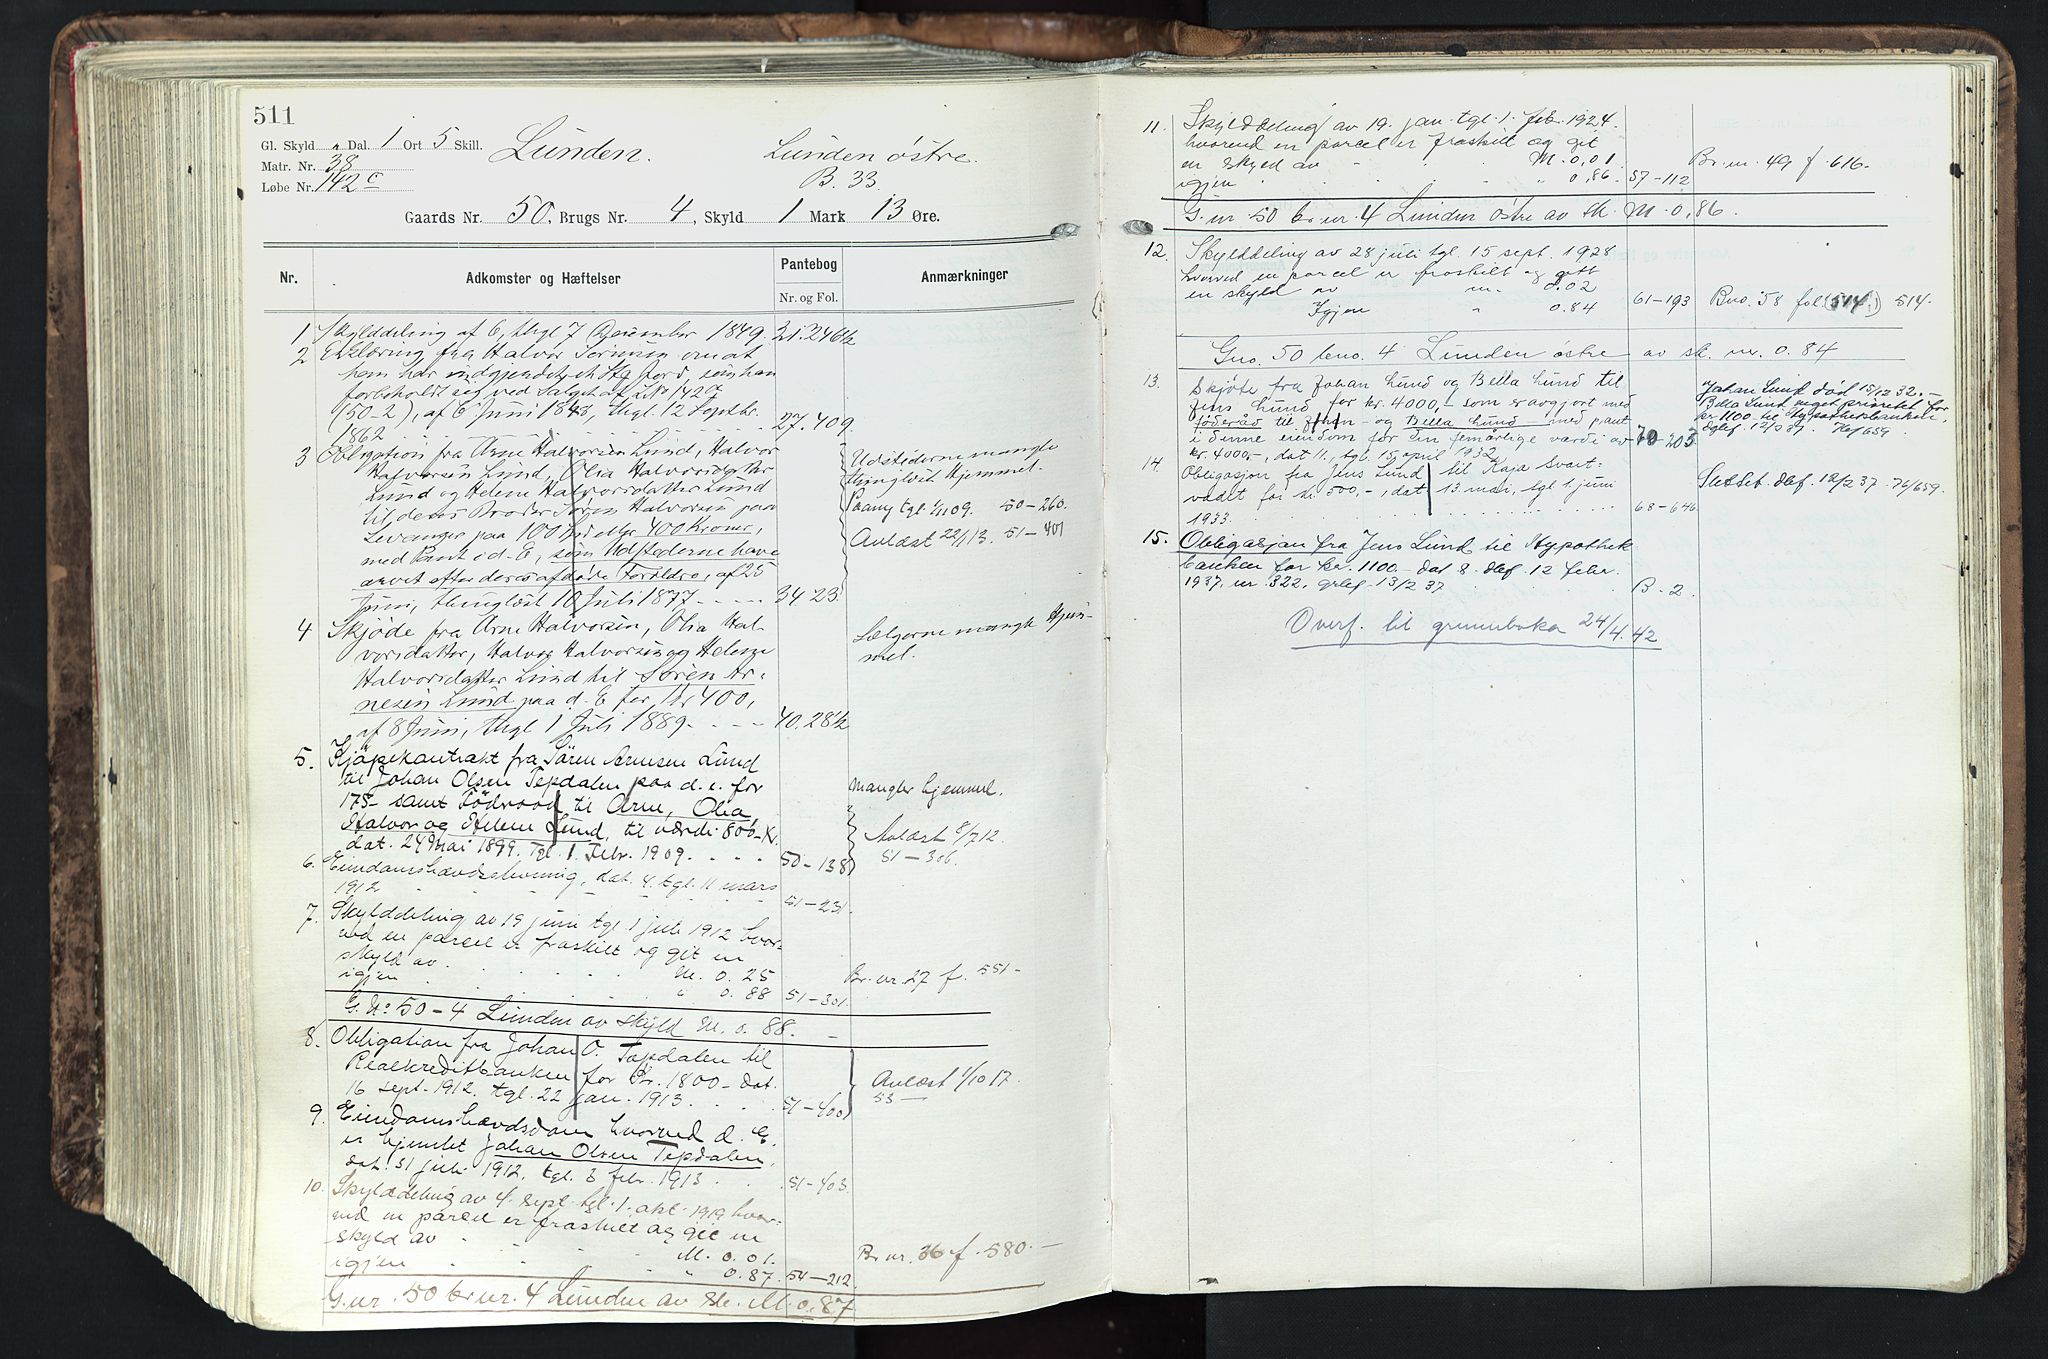 511
Gl. Skyld - Dal. 1 Ort 5 Skill.
Matr. Nr. 38
Løbe Nr. 142 c
Lunden.
Lunden østre.
B. 33.
Gaards Nr. 50. Brugs Nr. 4, Skyld 1 Mark 13 Øre.
Nr. Adkomster og Hæftelser Pantebog Anmærkninger
Nr. og Fol.
1 Skylddeling af 6, thgl 7 December 1849. 21.246½
2 Erklæring fra Halvor Sörensen om at
han har
forbeholdt sig ved Salget af LNo 142
(50-2), af 6 Juni 1848, thgl. 12 Septbr.
1862 27.409
3 Obligation fra Arne Halvorsen Lund, Halvor
Halvorsen Lund, Olia Halvorsdatter
Lund og Helene Halvorsdatter Lund
til deres Broder Sören Halvorsen paa
Levanger paa 100 Spd eller 400 Kroner,
med Pant i d. E, som Udstederne have
arvet efter deres afdøde Forældre, af 25
Juni, thinglæst 10 Juli 1877 34 23.
Udstederne mangle
thinglæst Hjemmel.
Paany tgl. 1/1109. 50-260.
Avlæst 22/1 13. 51-401
4 Skjøde fra Arne Halvorsen, Olia Hal-
vorsdatter, Halvor Halvorsen og Helene
Halvorsdatter Lund til Sören Ar-
nesen Lund paa d. E for Kr 400,
af 8 Juni, thgl 1 Juli 1889. 40.28½
Sælgerne mangle Hjem-
mel.
5. Kjöpekontrakt fra Sören Arnesen Lund
til Johan Olsen Tepdalen paa d. e. for
175- samt Födraad til Arne, Olia
Halvor og Helene Lund, til værdi 800- Kr.
dat. 24 Mai 1899. Tgl. 1. Febr. 1909. 50-138
mangler hjemmel.
Avlæst 8/7 12.
51-306.
6. Eiendomshævdstevning, dat. 4. tgl. 11 mars
1912 51-231.
7. Skylddeling av 19 juni tgl 1 juli 1912 hvor-
ved en parcel er fraskilt og git en
skyld av M. 0. 25
igjen " 0. 88 51-301. Br. nr. 27 f. 551-
G. No 50-4 Lunden av skyld M. 0. 88. -
8. Obligation fra Johan O. Tøpdalen til
Realkreditbanken for Kr. 1800- dat.
16 sept. 1912, tgl. 22 jan. 1913. 51-400
Avlæst 1/10 17.
53 -
9. Eiendomshævdsdom hvorved d. E.
er hjemlet Johan Olsen Tepdalen,
dat. 31 juli 1912, tgl. 3 febr. 1913. 51-403.
10. Skylddeling av 4. sept. tgl. 1. okt. 1919 hvor-
ved en parcel er fraskilt og git en
skyld av M. 0. 01.
igjen " 0.87. 54-212. Br. nr. 36 f. 580.-
G. nr. 50 br. nr. 4 Lunden av sk. M. 0. 87
11. Skylddeling av 19. jan. tgl. 1. febr. 1924.
hvorved en parcel er fraskilt og git
en skyld av M. 0,01.
igjen " 0,86. 57-112 Br. nr. 49 f. 616.
G. nr 50 br. nr. 4 Lunden østre av sk. M. 0,86.
12. Skylddeling av 28 juli tgl. 15 sept. 1928
hvorved en parcel er fraskilt og gitt
en skyld av m. 0.02
Igjen " 0.84 61-193 Bno. 58 fol (514.) 514.
Gno. 50 bno. 4 Lunden østre av sk. m. 0.84
13. Skjøte fra Johan Lund og Bella Lund til
Jens Lund for kr. 4000,- som er avgjort med
föderåd til Johan- og Bella Lund med pant
i denne eiendom for sin femårlige værdi av 70-205
kr. 4000,-, dat 11., tgl. 15. april 1932.
Johan Lund død 15/12 32.-
Bella Lund veget prioritet for
kr. 1100 til Hypothekbanken,
dglef. 12/2 37. Hef 659.
14. Obligasjon fra Jens Lund til Kaja Svart-
vadet for kr 500,-, dat 13. mai, tgl 1. juni
1933. 68-646
Slettet. dlef. 12/2 37. 76/659.
15. Obligasjon fra Jens Lund til Hypothek
banken for kr. 1100.- dat 8. dlef. 12 febr.
1937, nr. 322, grlef. 13/2 37 B. 2
Overf. til grunnboka 24/4.42